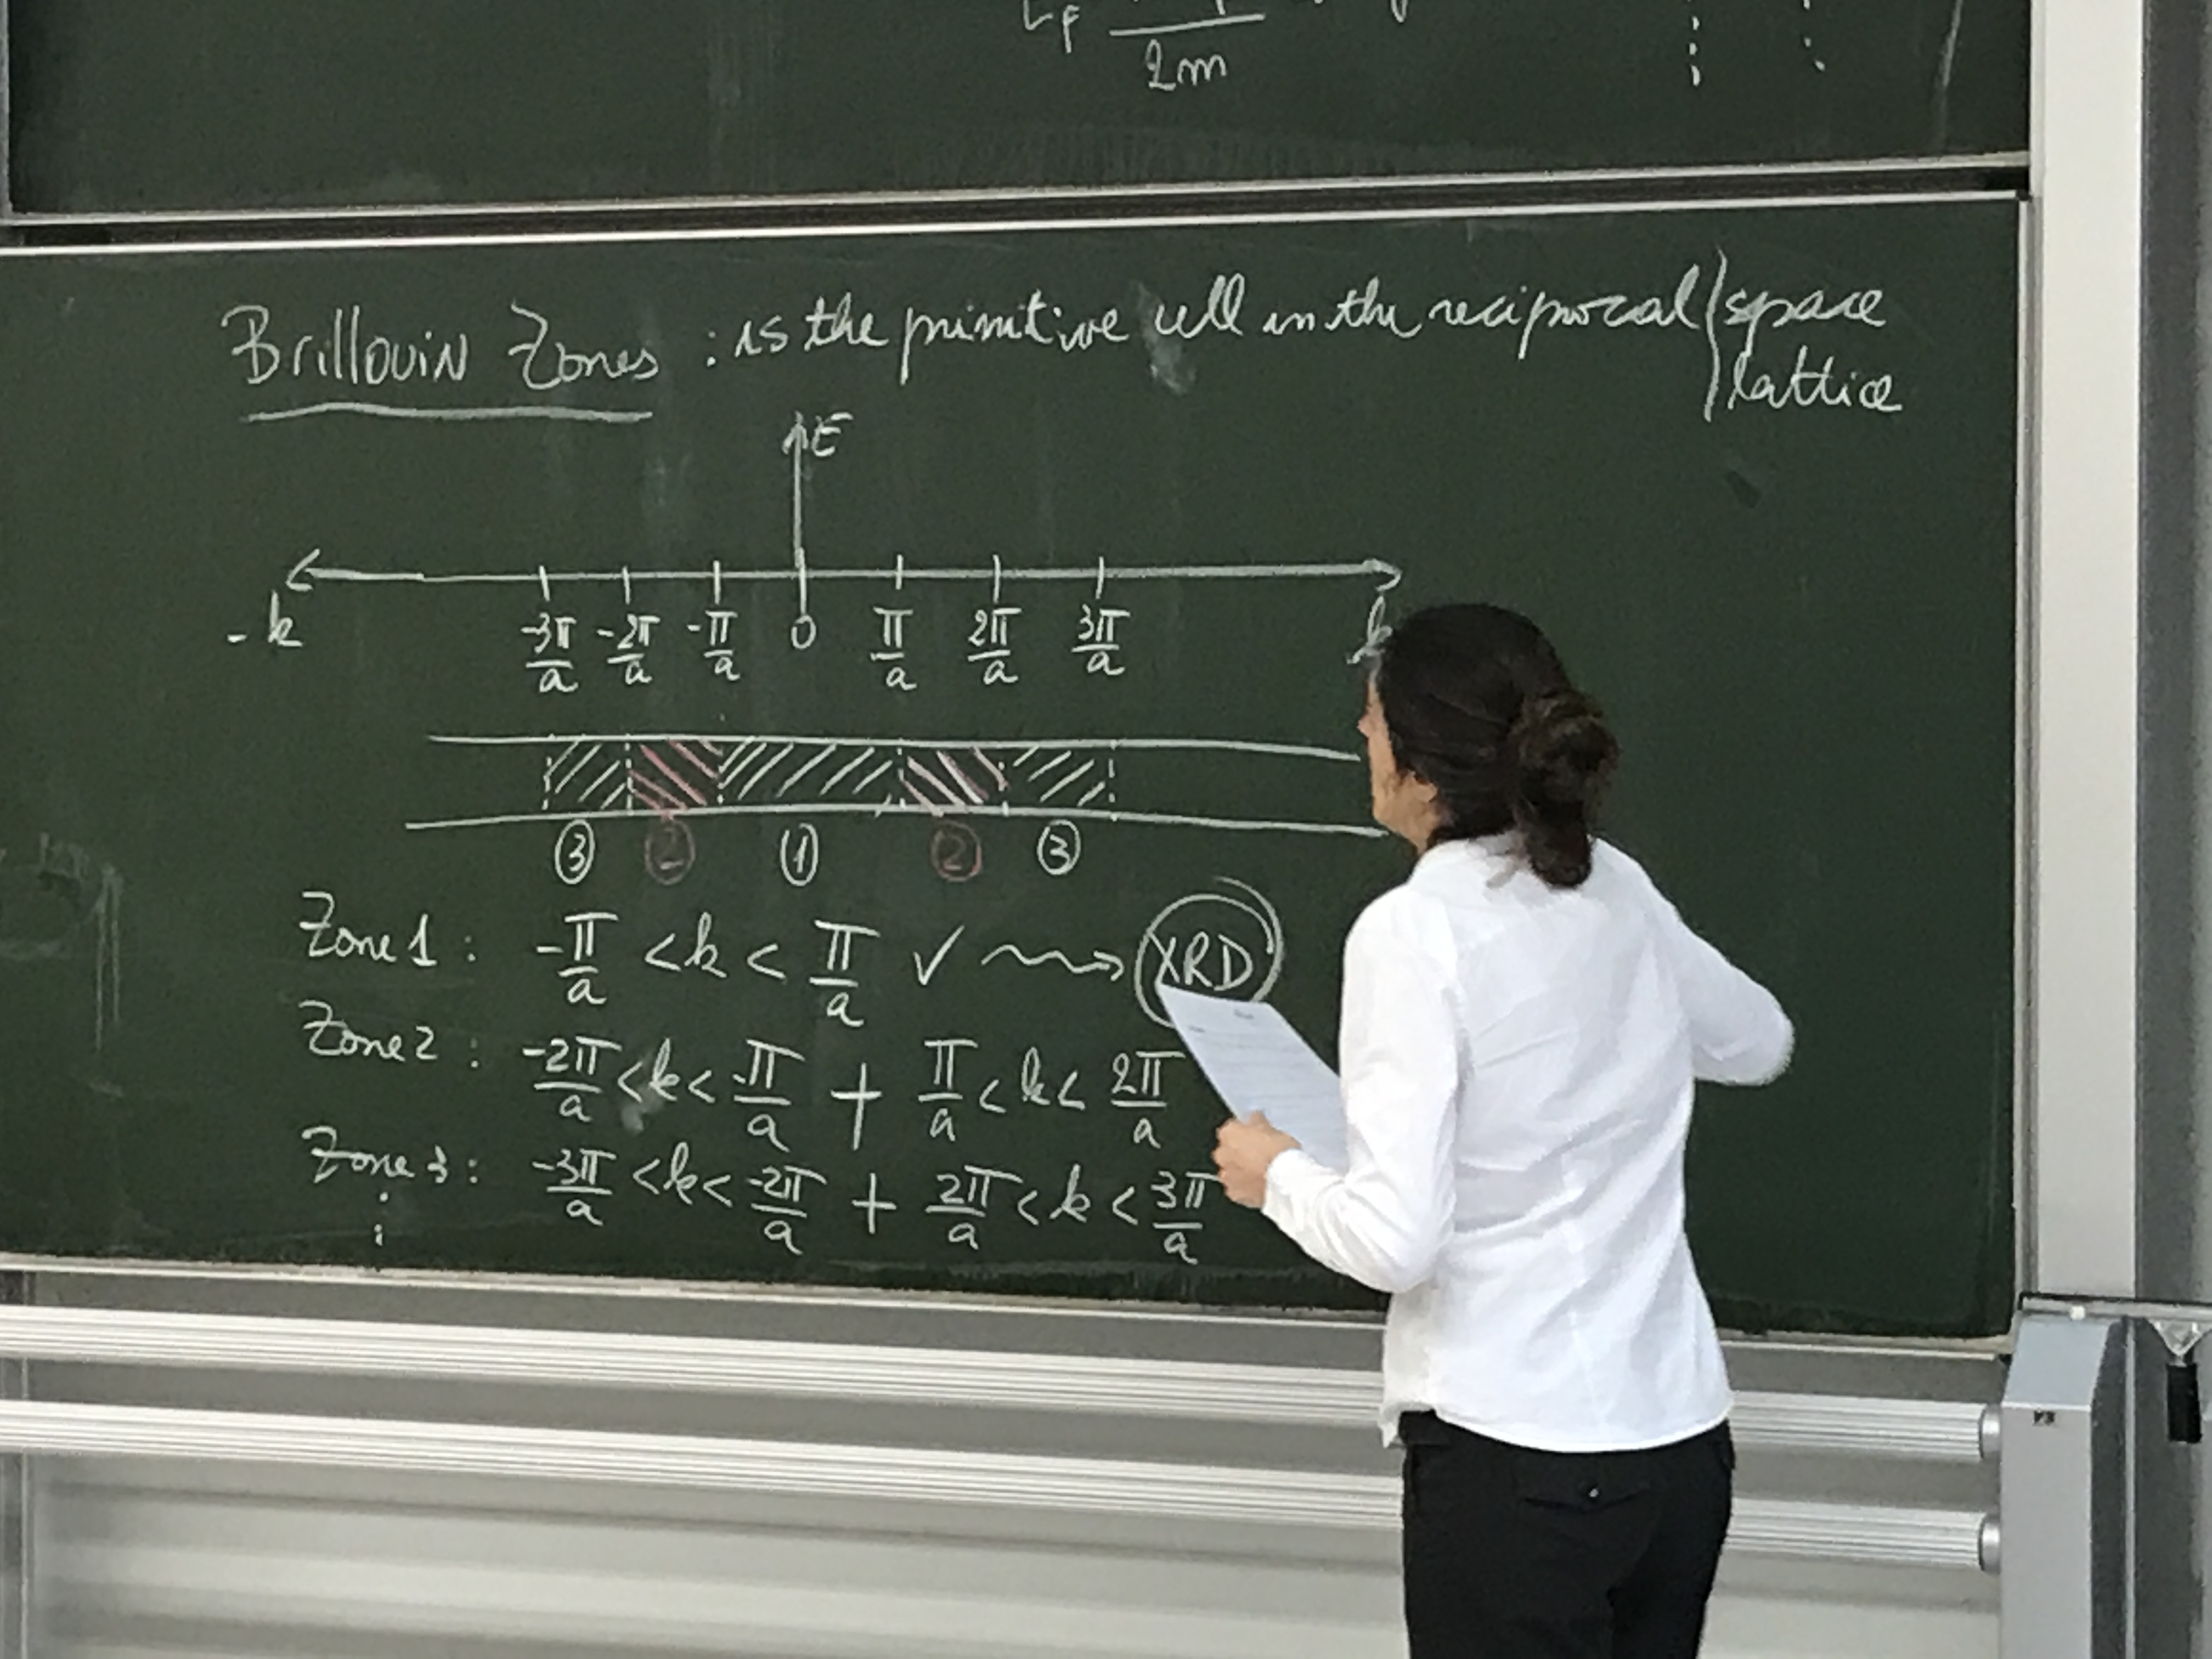 2m
Brillouin Zones : is the primitive cell in the reciprocal space
lattice
E
-k -3π/a -2π/a -π/a 0 π/a 2π/a 3π/a k
3 2 1 2 3
Zone 1 : -π/a < k < π/a ✓ XRD
Zone 2 : -2π/a < k < -π/a + π/a < k < 2π/a
Zone 3 : -3π/a < k < -2π/a + 2π/a < k < 3π/a